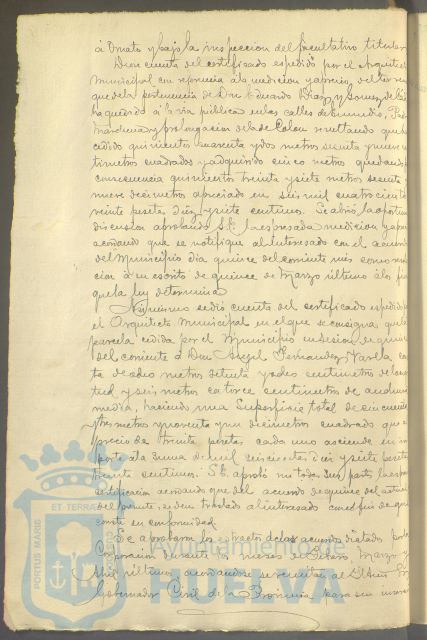 á Ornato y bajo la inspeccion del facultativo titular
Diose cuenta del certificado espedido por el Arquitecto
Municipal con referencia á la medicion y aprecio, del terreno
que de la pertenencia de Don Eduardo Diaz y Gomez de
ha quedado á la via pública en las calles de
Marchena y prolongacion de la de Colon resultando que ha
cedido quinientos cuarenta y dos metros sesenta y nueve
timetros cuadrados y adquirido cinco metros quedando
consecuencia quinientos treinta y siete metros sesenta
nueve decimetros apreciado en seis mil cuatrocientas
veinte pesetas diez y siete centimos. Se abrió la oportuna
discusion aprobando S.E. la espresada medicion y aprecio
acordando que se notifique al interesado con el acuerdo
del Municipio dia quince del corriente mes como
cion á su escrito de quince de Marzo último á los fines
que la ley determina
Asimismo se dió cuenta del certificado espedido por
el Arquitecto Municipal en el que se consigna que la
parcela cedida por el Municipio en sesion de quince
del corriente á Don Angel Fernandez Varela
ta de ocho metros setenta y ocho centimetros de longi
tud y seis metros catorce centimetros de anchura
media, haciendo una superficie total de cincuenta
y tres metros y noventa y un decimetros cuadrado que al
precio de treinta pesetas cada uno asciende su im
porte á la suma de mil seiscientas diez y siete pesetas
treinta centimos. S.E. aprobó en todas sus partes la espresada
certificacion acordando que del acuerdo de quince del actual
y del presente, se den traslado al interesado con el fin de que
conste su conformidad.
Se aprobaron los estractos de los acuerdos dictados por la
Corporacion durante los meses de Febrero, Marzo y
Abril últimos acordandose se remitan al Ilmo Sr
Gobernador Civil de la Provincia para su insercion
PORTUS MARIS
ET TERRAE
CUSTODIO
Ayuntamiento de
HUELVA